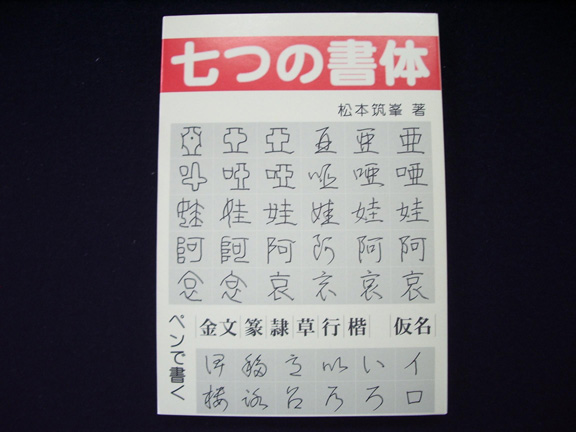 七つの書体
松本筑峯 著
亞 亞 亞 亞 亜 亜
啞 啞 啞 唖 唖
娃 娃 娃 娃 娃
阿 阿 阿 阿 阿 阿
哀 哀 哀 哀
ペンで書く
金文 篆 隷 草 行 楷 仮名
以 い イ
ろ ろ ロ